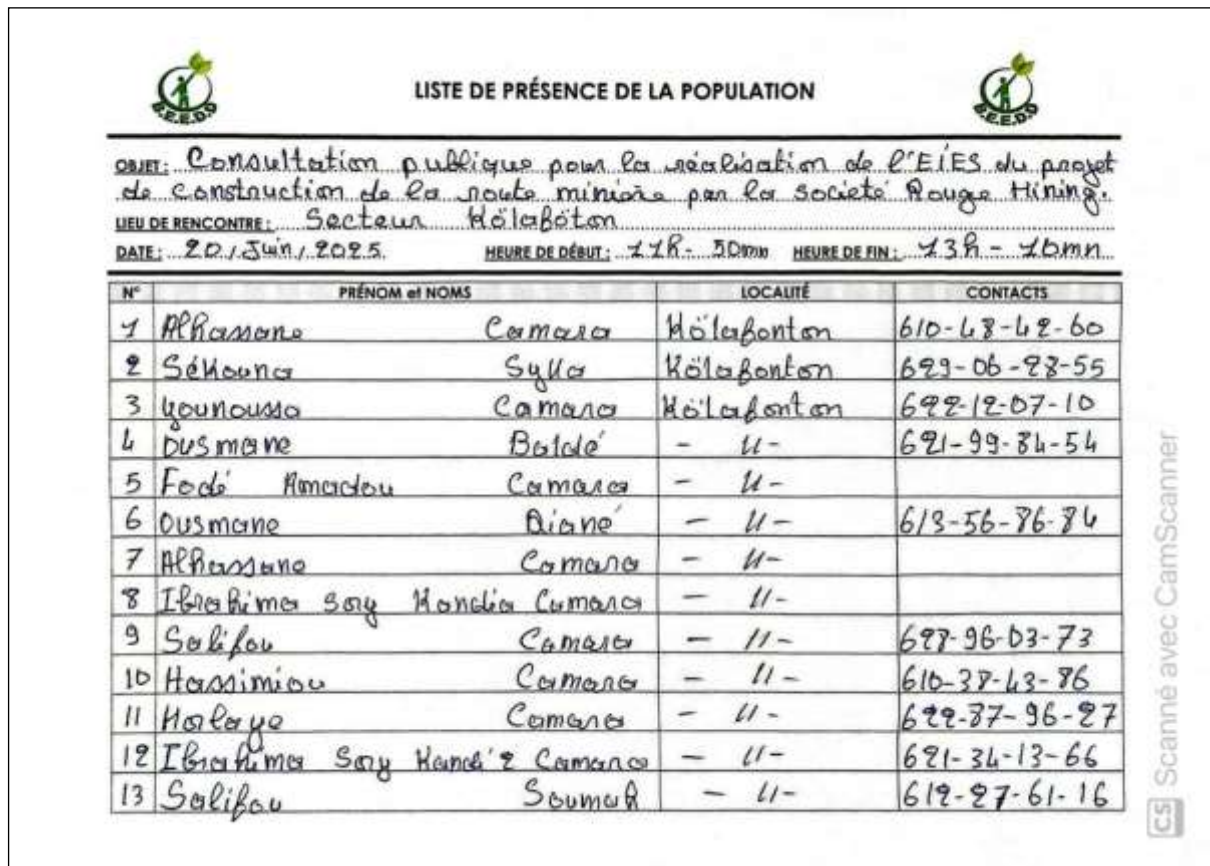 B.E.E.D.D
LISTE DE PRÉSENCE DE LA POPULATION
B.E.E.D.D
OBJET: Consultation publique pour la réalisation de l'EIES du projet
de construction de la route minière par la société Rouge Mining.
LIEU DE RENCONTRE: Secteur Kölaboton
DATE: 20, Juin, 2025. HEURE DE DÉBUT: 11h - 50mn HEURE DE FIN: 13h - 10mn
N° PRÉNOM et NOMS LOCALITÉ CONTACTS
1 Alhassane Camara Kölafonton 610-48-42-60
2 Sékouna Sylla Kölafonton 629-06-28-55
3 Younoussa Camara Kölafonton 622-12-07-10
4 Ousmane Baldé - 11 - 621-99-84-54
5 Fodé Amadou Camara - 11 -
6 Ousmane Diané - 11 - 613-56-86-84
7 Alhassane Camara - 11 -
8 Ibrahima Sory Kandia Camara - 11 -
9 Salifou Camara - 11 - 628-96-03-73
10 Hassimiou Camara - 11 - 610-38-43-86
11 Camara - 11 - 622-87-96-27
12 Ibrahima Sory Kandi 2 Camara - 11 - 621-34-13-66
13 Salifou Soumah - 11 - 612-27-61-16
CS Scanné avec CamScanner